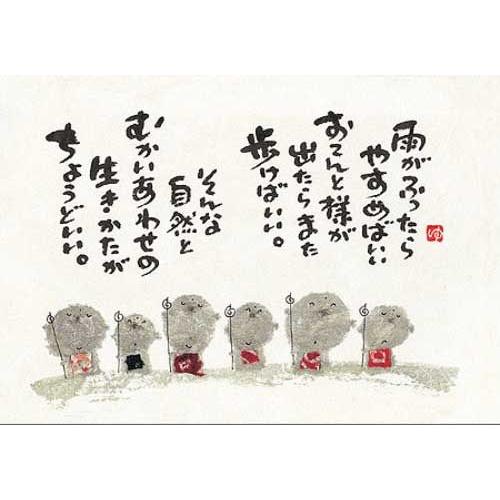 雨がふったら
やすめばいい
おてんと様が
出たらまた
歩けばいい。
そんな
自然と
むかいあわせの
生きかたが
ちょうどいい。
ゆ